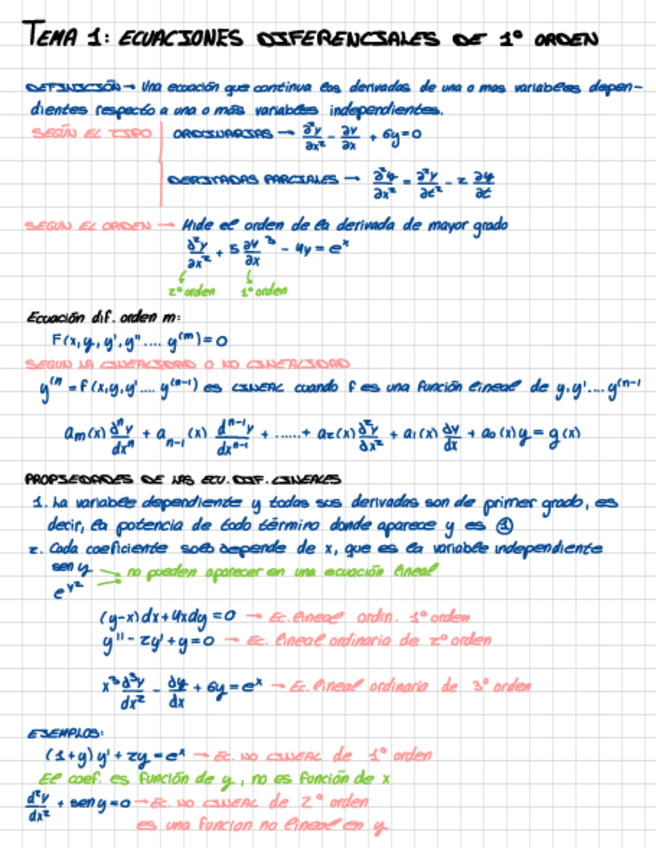 TEMA 1: ECUACIONES DIFERENCIALES DE 1º ORDEN
DEFINICIÓN → Una ecuación que continua las derivadas de una o mas variables depen-
dientes respecto a una o más variables independientes.
SEGÚN EL TIPO
ORDINARIAS → ∂²y/∂x² - ∂y/∂x + 6y = 0
DERIVADAS PARCIALES → ∂²φ/∂x² = ∂²y/∂t² - 2 ∂φ/∂t
SEGUN EL ORDEN → Mide el orden de la derivada de mayor grado
∂²y/∂x² + 5 ∂y/∂x ³ - 4y = eˣ
2º orden 1º orden
Ecuación dif. orden m:
F(x, y, y', y'' .... y⁽ᵐ⁾) = 0
SEGUN LA LINEALIDAD O NO LINEALIDAD
y⁽ⁿ = f(x, y, y' .... y⁽ⁿ⁻¹⁾) es LINEAL cuando f es una función lineal de y, y' .... y⁽ⁿ⁻¹
aₘ(x) dⁿy/dxⁿ + aₙ₋₁(x) dⁿ⁻¹y/dxⁿ⁻¹ + ...... + a₂(x) ∂²y/∂x² + a₁(x) dy/dx + a₀(x) y = g(x)
PROPIEDADES DE LAS ECU. DIF. LINEALES
1. La variable dependiente y todas sus derivadas son de primer grado, es
decir, la potencia de todo término donde aparece y es ①
2. Cada coeficiente solo depende de x, que es la variable independiente
sen y
e^y² → no pueden aparecer en una ecuación lineal
(y-x)dx + 4xdy = 0 → Ec. lineal ordin. 1º orden
y'' - 2y' + y = 0 → Ec. lineal ordinaria de 2º orden
x³ ∂³y/dx² - dy/dx + 6y = eˣ → Ec. lineal ordinaria de 3º orden
EJEMPLOS:
(1+y) y' + 2y = eˣ → Ec. NO LINEAL de 1º orden
El coef. es función de y, no es función de x
d²y/dx² + sen y = 0 → Ec. NO LINEAL de 2º orden
es una funcion no lineal en y